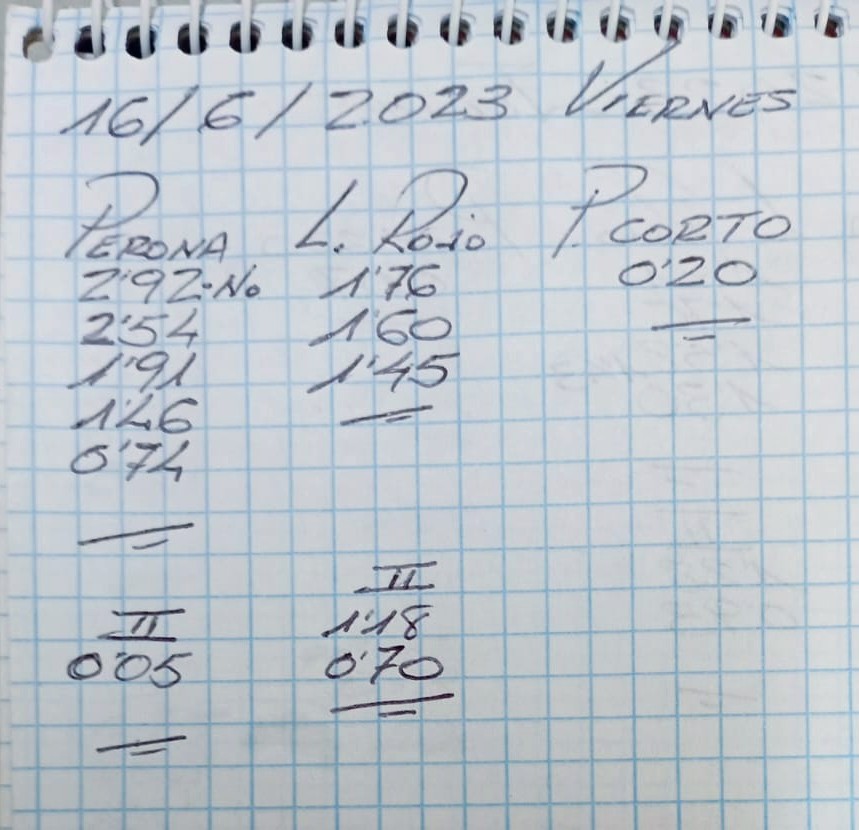 16/6/2023 VIERNES
PERONA L. ROJO P. CORTO
2'92-No 1'76 0'20
2'54 1'60
1'91 1'45
1'46
0'74
II
II 1'18
0'05 0'70